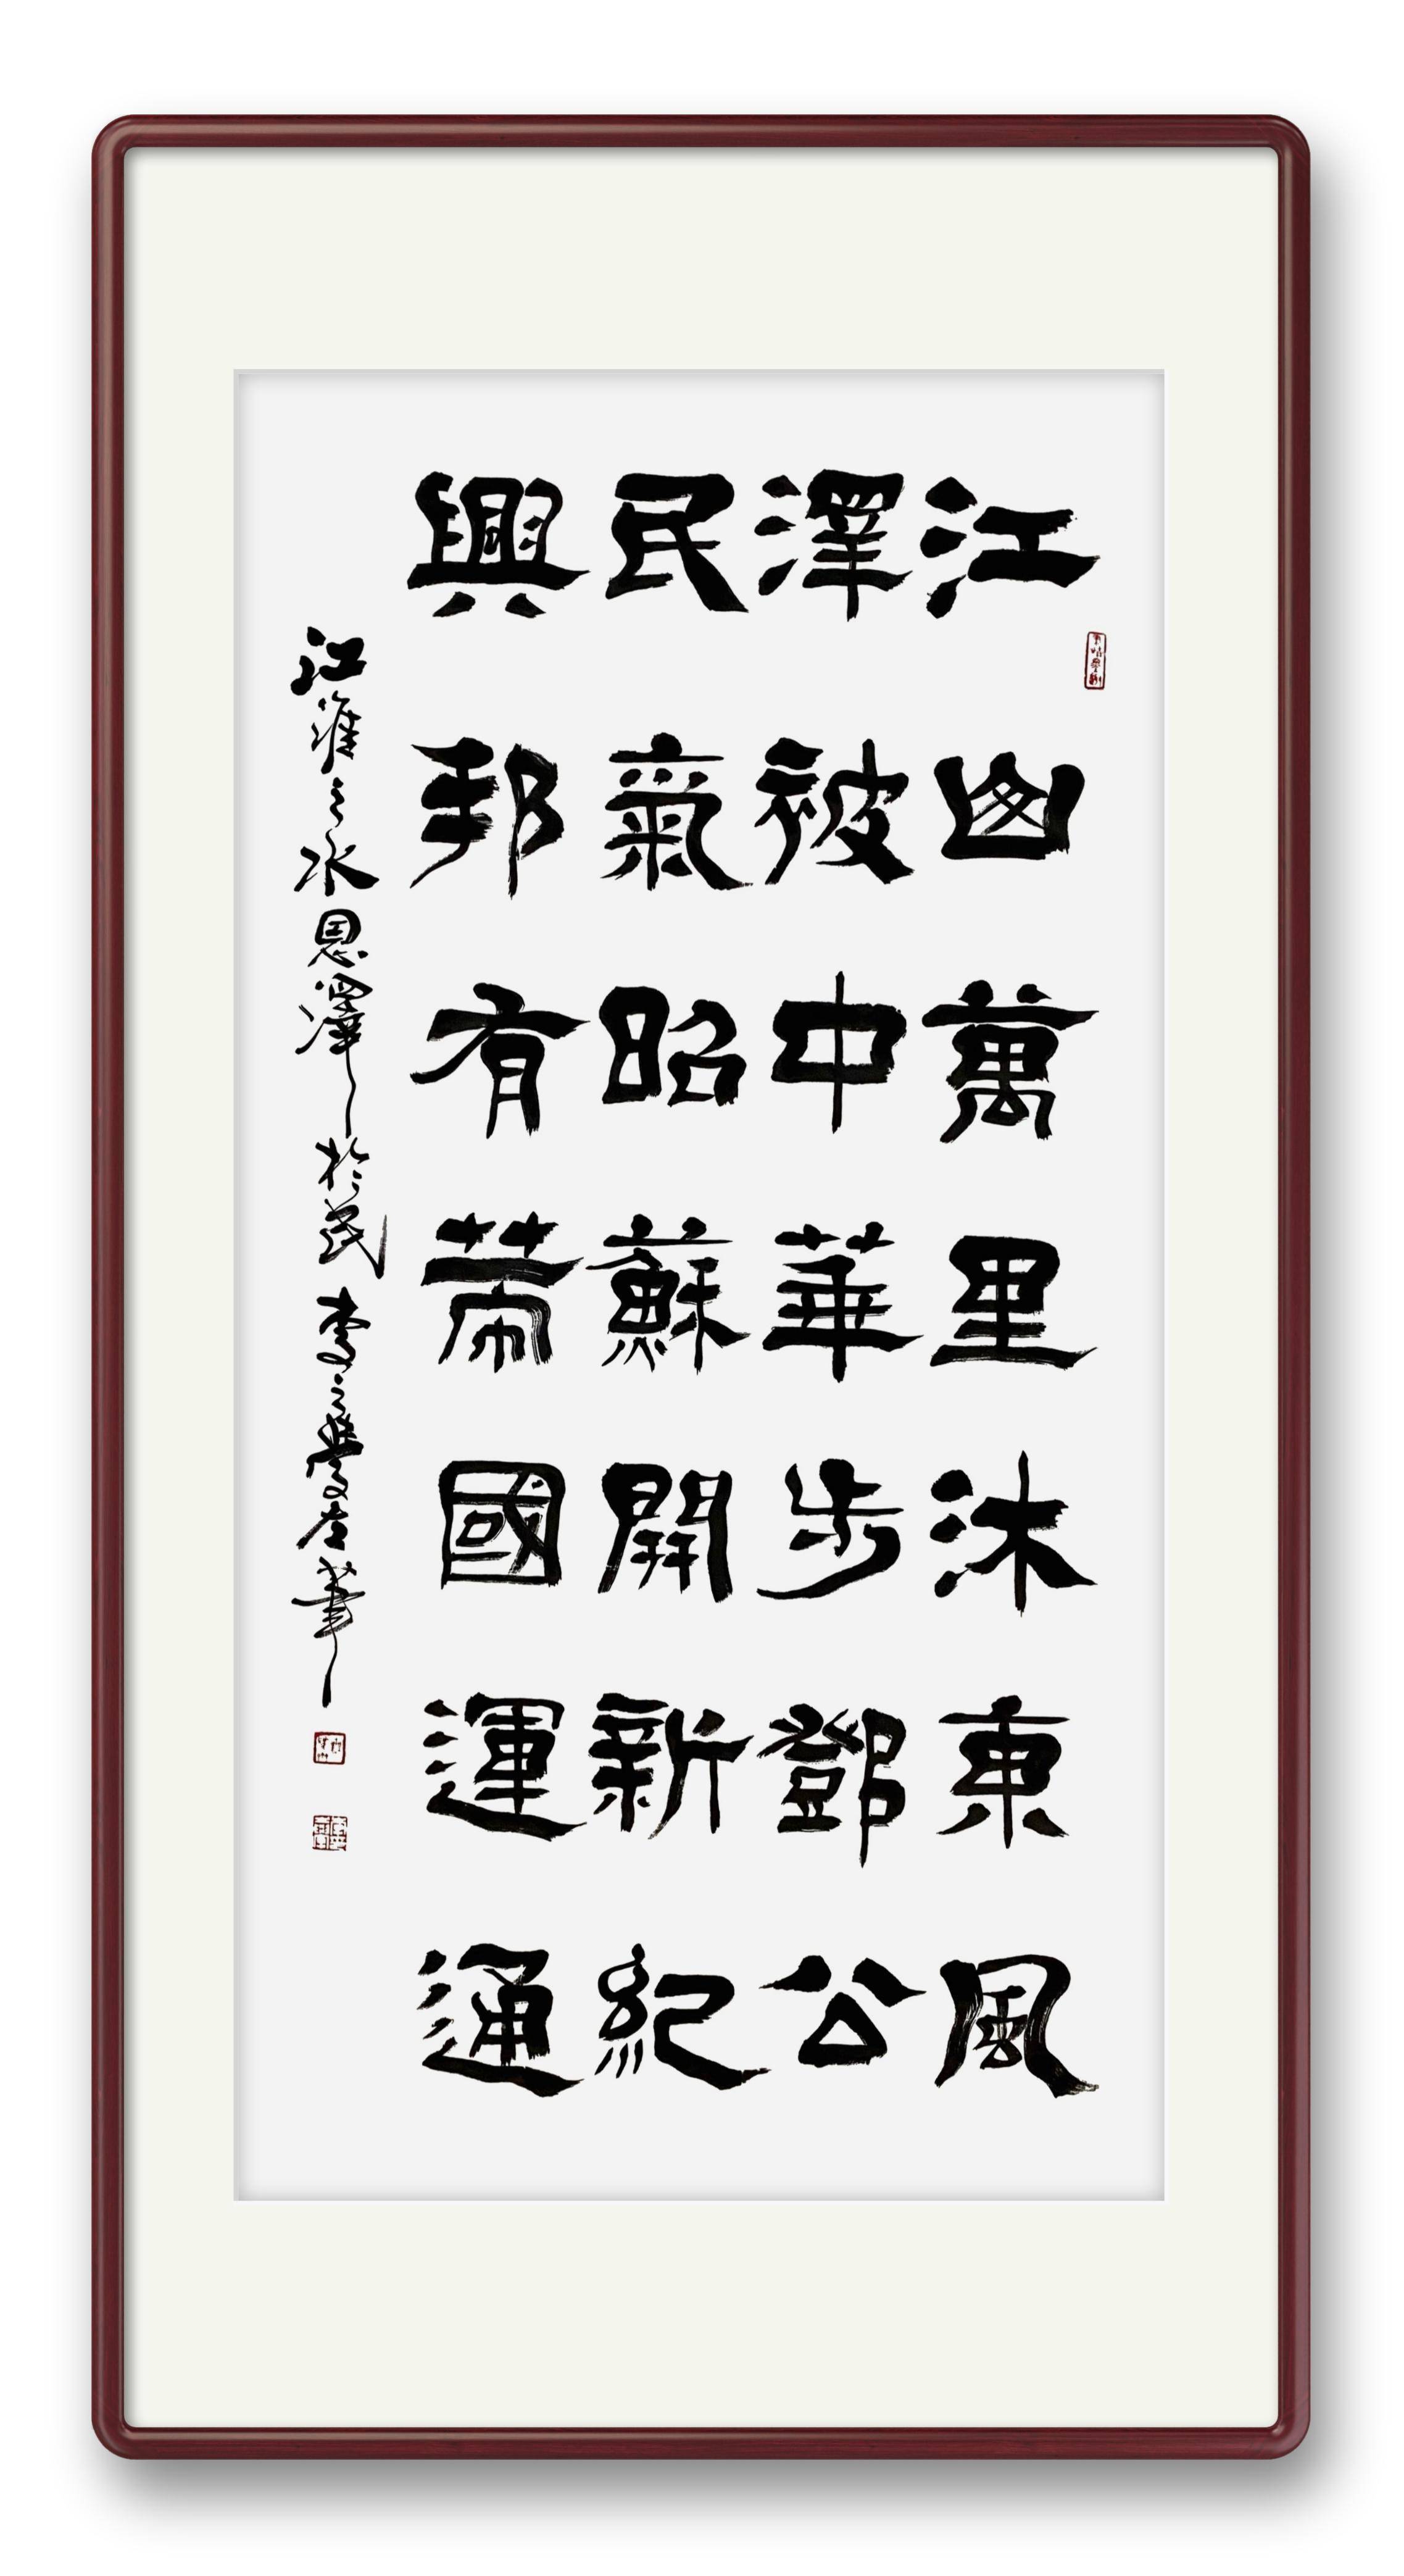 江山萬里沐東風
澤被中華步鄧公
民氣昭蘇開新紀
興邦有國運通
江淮之水恩澤於民 李之左筆